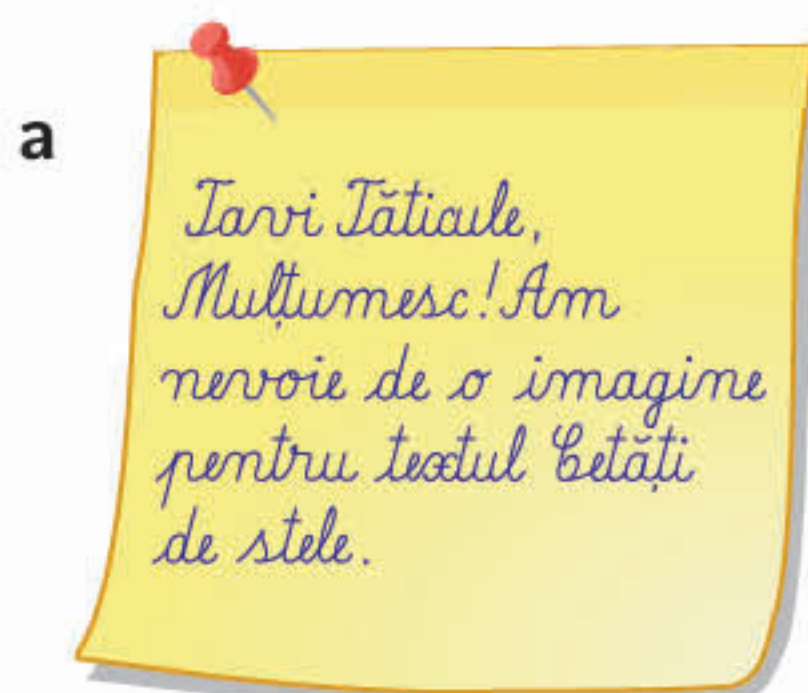 a
Tavi Tăticule,
Mulțumesc! Am
nevoie de o imagine
pentru textul Cetăți
de stele.